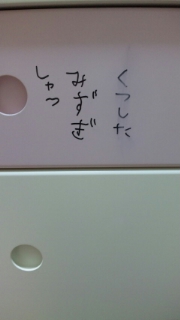 くつした
みずぎ
しゃつ